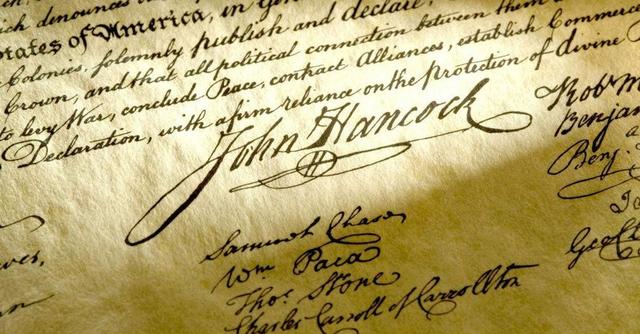 ich denounces
States of America, in Gen
Colonies, solemnly publish and declare,
Crown, and that all political connection between them
to levy War, conclude Peace, contract Alliances, establish Commerce
Declaration, with a firm reliance on the protection of divine
John Hancock
Rob
Benja
Benj.
Geo
Samuel Chase
Wm Paca
Thos. Stone
Charles Carroll of Carrollton